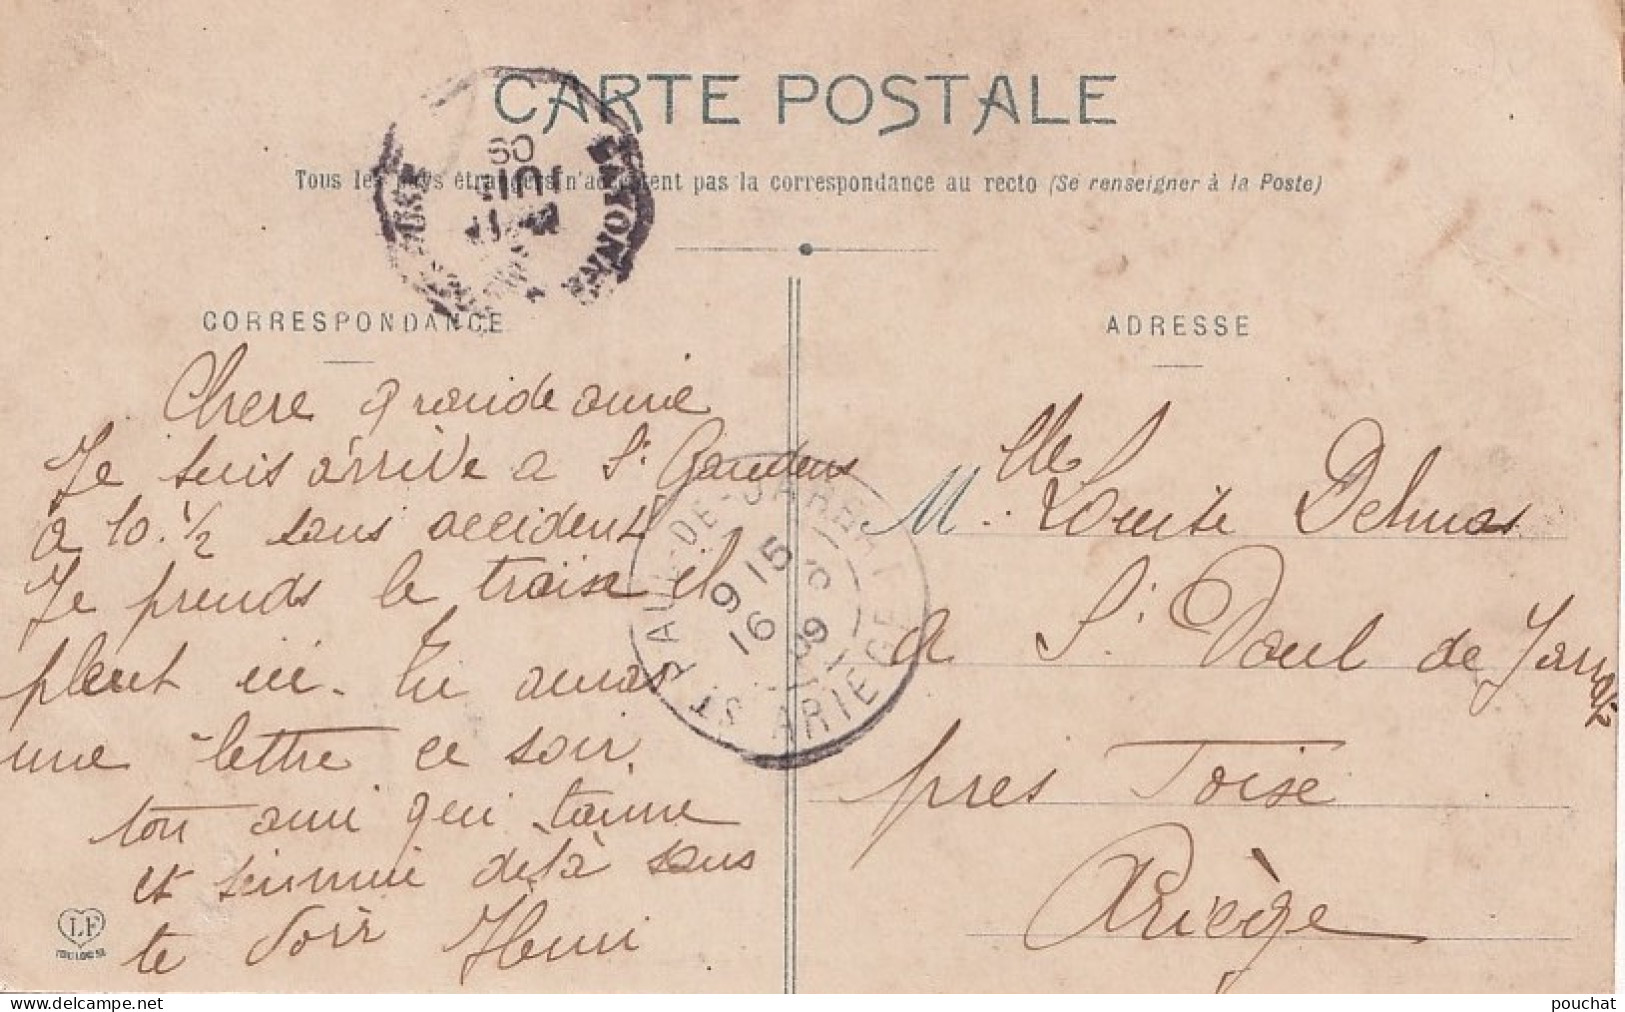 CARTE POSTALE
Tous les pays étrangers n'acceptent pas la correspondance au recto (Se renseigner à la Poste)
CORRESPONDANCE
ADRESSE
Chere grande amie
Je suis arrivé a St Gaudens
a 10.1/2 sans accident
Je prends le train il
pleut ici. Tu auras
une lettre ce soir.
ton ami qui t'aime
et s'ennuie déjà sans
te voir Henri
Mlle Louise Delmas
a St Paul de Jarrat
près Foix
Ariège
ST PAUL-DE-JARRAT
9 15
16
09
ARIEGE
YONNE
09
LF
TOULOUSE
pouchat